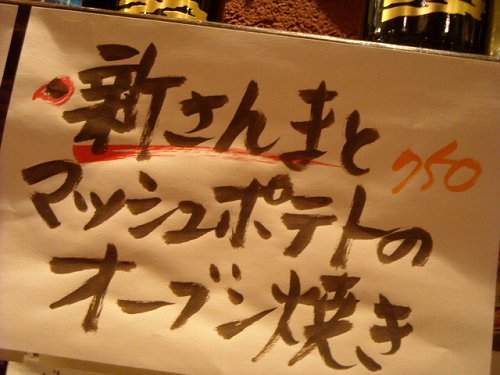 新さんまと
マッシュポテトの
オーブン焼き
750